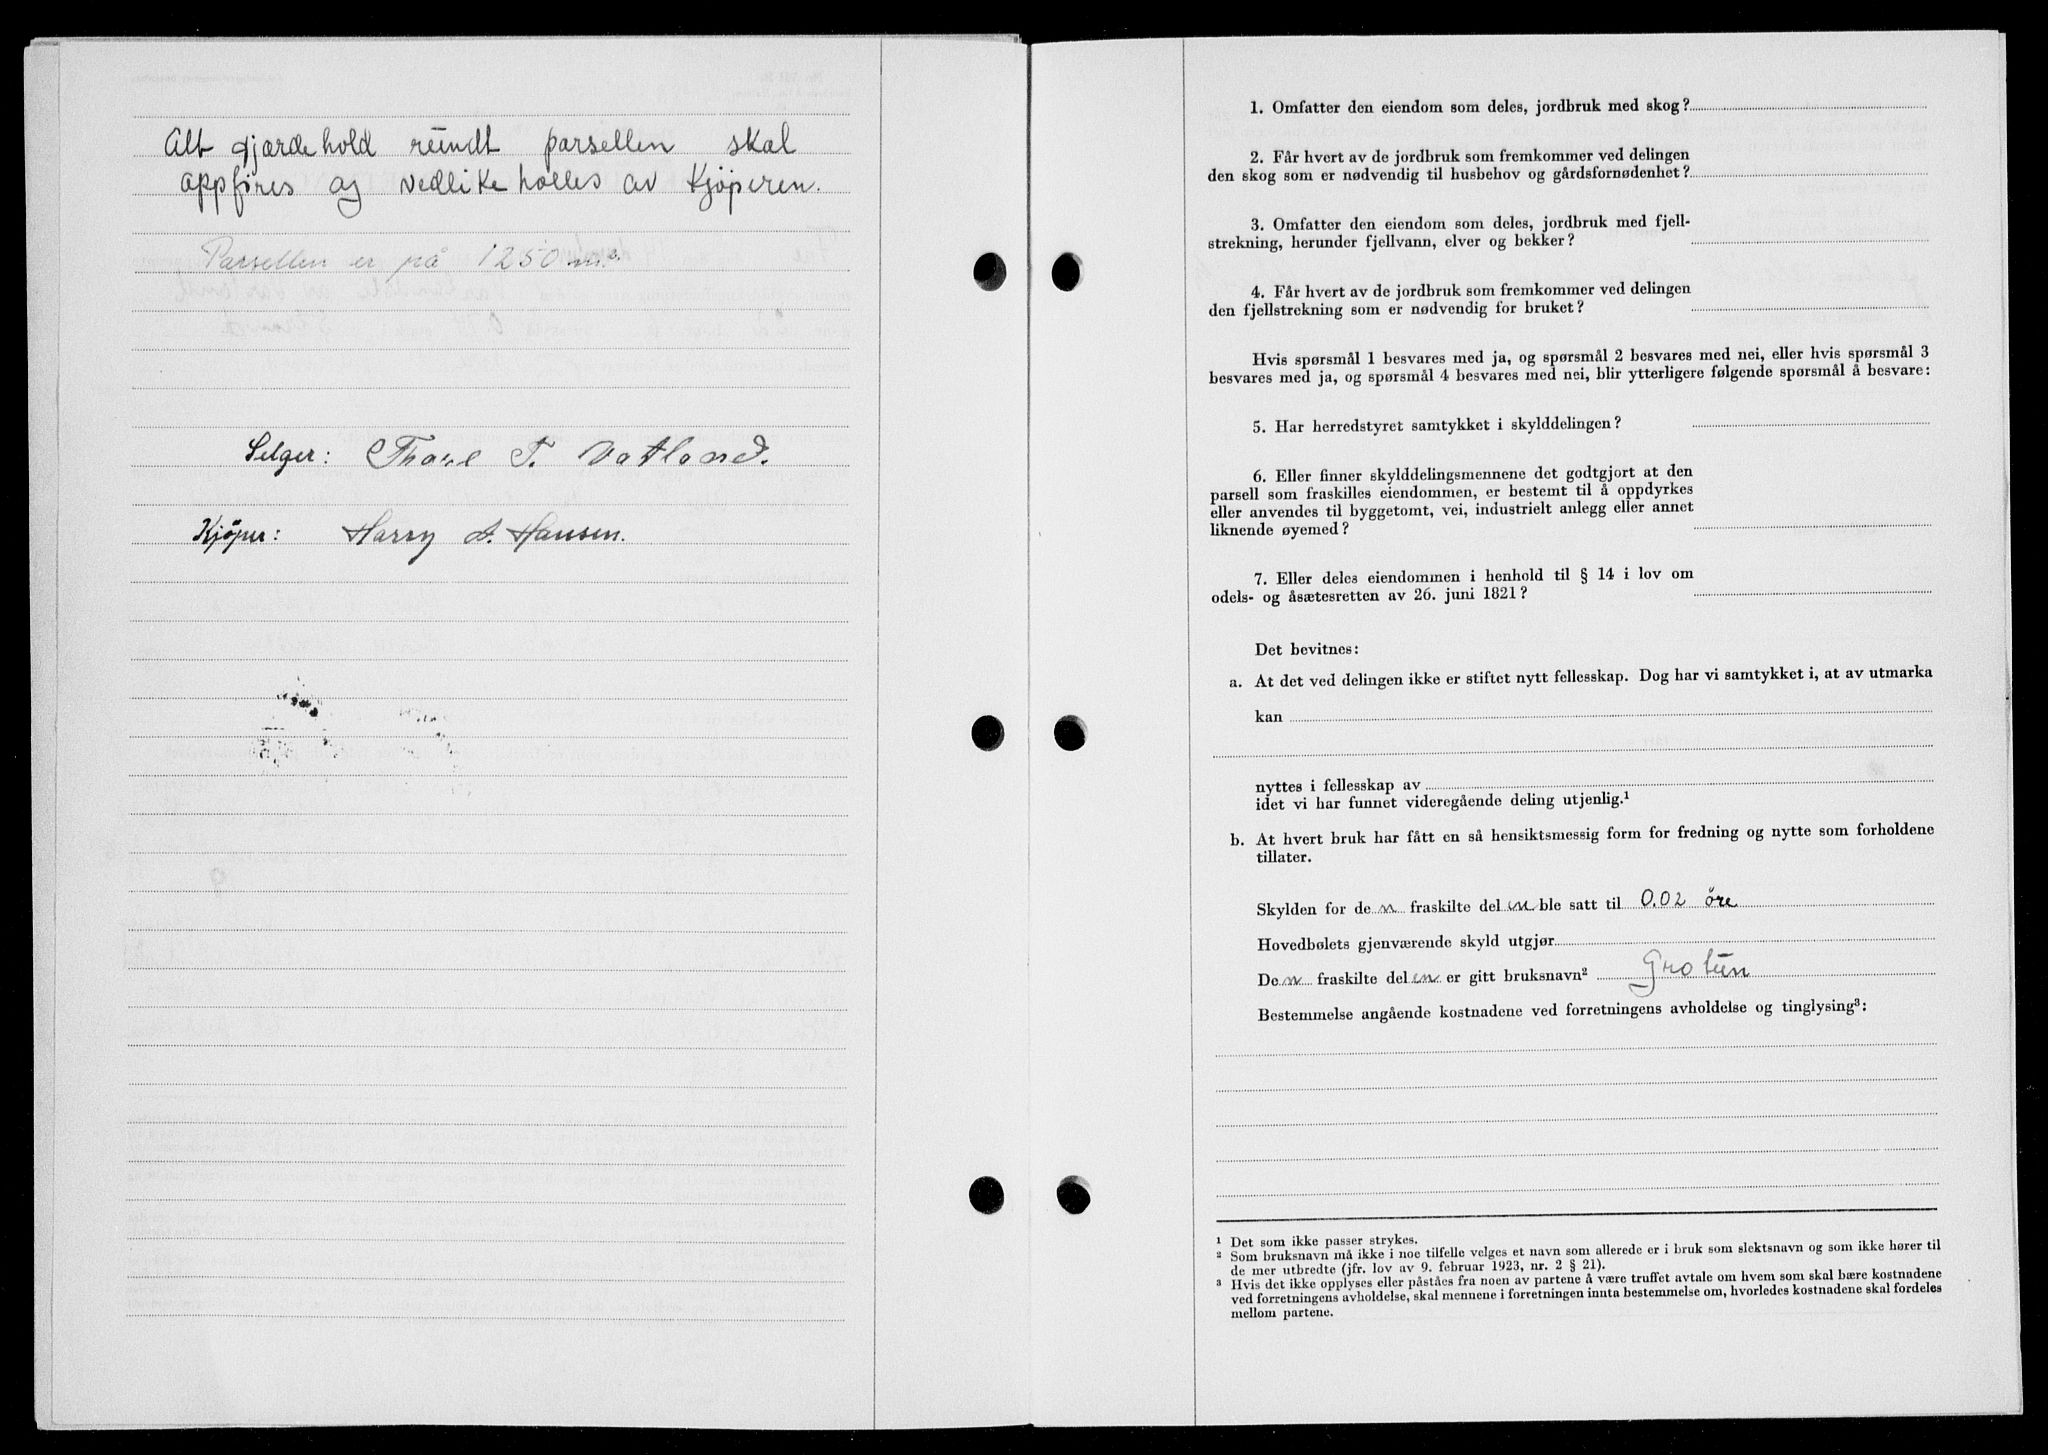 Alt gjærdehold rundt parsellen skal
oppføres og vedlikeholles av Kjøperen.
Parsellen er på 1250 m².
Selger: T. Vatland.
Kjøper: Harry A. Hansen.
1. Omfatter den eiendom som deles, jordbruk med skog?
2. Får hvert av de jordbruk som fremkommer ved delingen
den skog som er nødvendig til husbehov og gårdsfornødenhet?
3. Omfatter den eiendom som deles, jordbruk med fjell-
strekning, herunder fjellvann, elver og bekker?
4. Får hvert av de jordbruk som fremkommer ved delingen
den fjellstrekning som er nødvendig for bruket?
Hvis spørsmål 1 besvares med ja, og spørsmål 2 besvares med nei, eller hvis spørsmål 3
besvares med ja, og spørsmål 4 besvares med nei, blir ytterligere følgende spørsmål å besvare:
5. Har herredstyret samtykket i skylddelingen?
6. Eller finner skylddelingsmennene det godtgjort at den
parsell som fraskilles eiendommen, er bestemt til å oppdyrkes
eller anvendes til byggetomt, vei, industrielt anlegg eller annet
liknende øyemed?
7. Eller deles eiendommen i henhold til § 14 i lov om
odels- og åsætesretten av 26. juni 1821?
Det bevitnes:
a. At det ved delingen ikke er stiftet nytt fellesskap. Dog har vi samtykket i, at av utmarka
kan
nyttes i fellesskap av
idet vi har funnet videregående deling utjenlig.¹
b. At hvert bruk har fått en så hensiktsmessig form for fredning og nytte som forholdene
tillater.
Skylden for den fraskilte delen ble satt til 0.02 øre
Hovedbølets gjenværende skyld utgjør
Den fraskilte delen er gitt bruksnavn² Grotun
Bestemmelse angående kostnadene ved forretningens avholdelse og tinglysing³:
¹ Det som ikke passer strykes.
² Som bruksnavn må ikke i noe tilfelle velges et navn som allerede er i bruk som slektsnavn og som ikke hører til
de mer utbredte (jfr. lov av 9. februar 1923, nr. 2 § 21).
³ Hvis det ikke opplyses eller påståes fra noen av partene å være truffet avtale om hvem som skal bære kostnadene
ved forretningens avholdelse, skal mennene i forretningen innta bestemmelse om, hvorledes kostnadene skal fordeles
mellom partene.